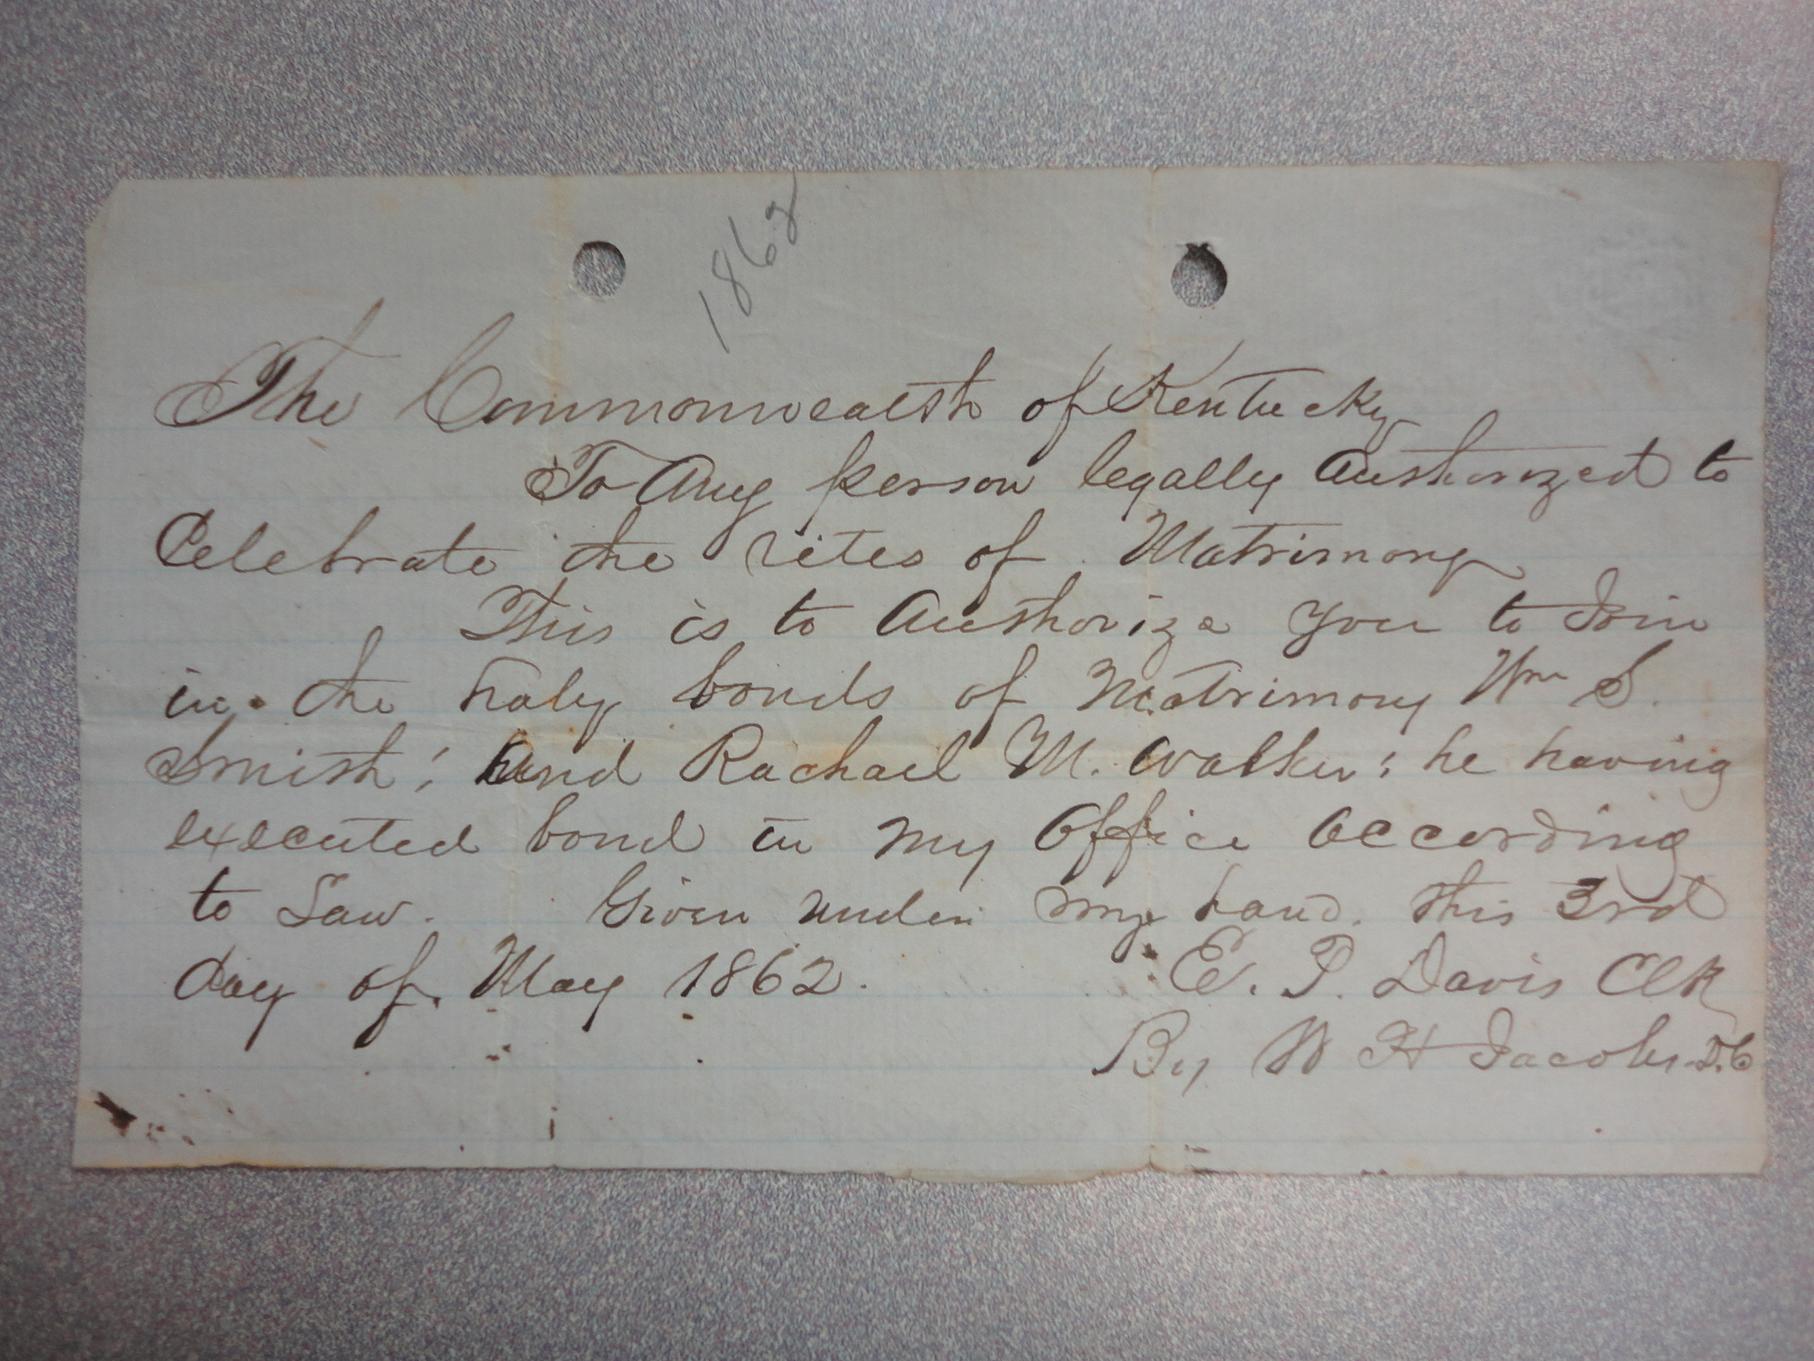 1862
The Commonwealth of Kentucky
To Any person legally Authorized to
Celebrate the rites of Matrimony
This is to Authorize you to Join
in the holy bonds of Matrimony Wm S.
Smith; And Rachael M. Walker; he having
executed bond in my Office According
to Law. Given under my hand. this 3rd
day of May 1862.
E. P. Davis Clk
By W H Jacobs D.C